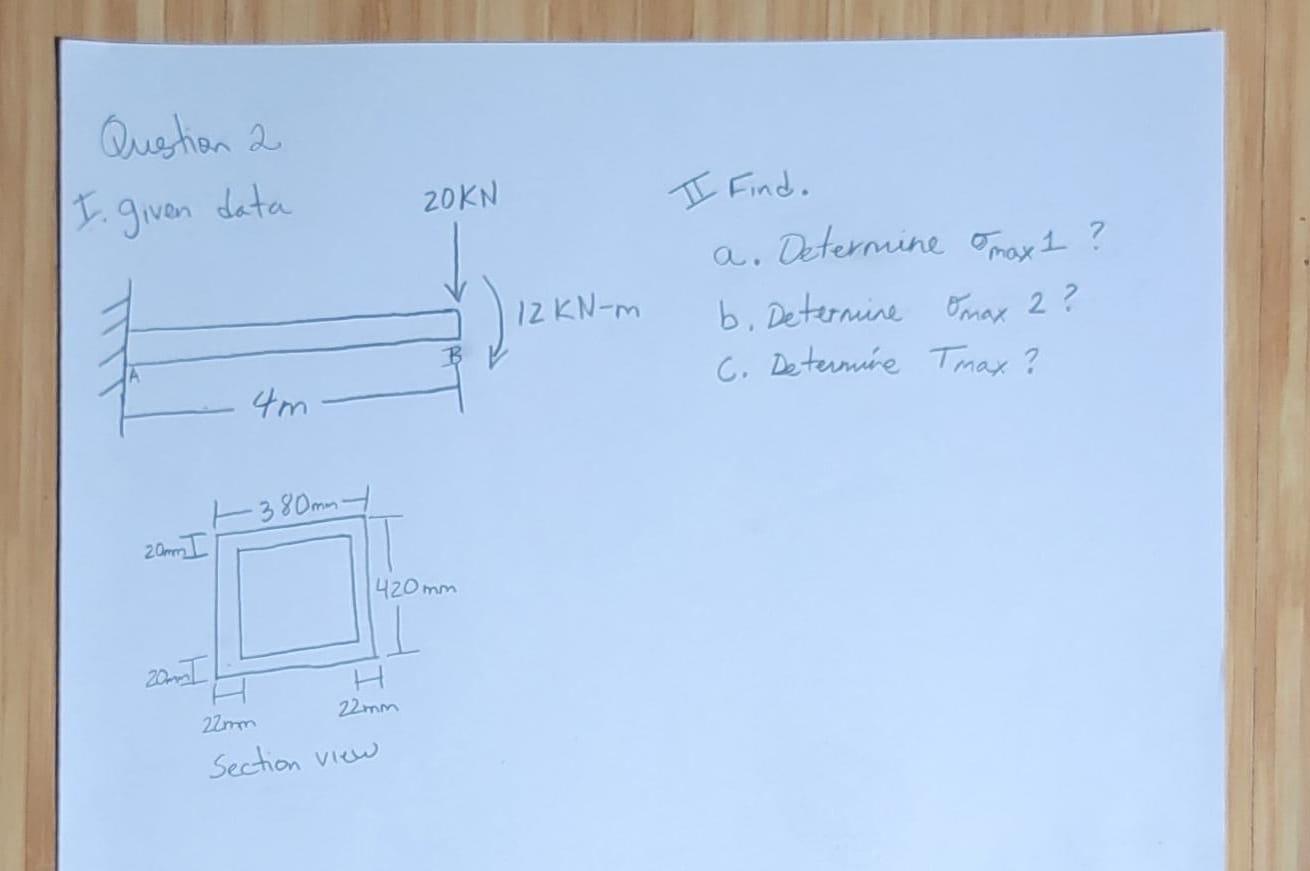 Question 2
I. given data
20KN
12 KN-m
A
B
4m
380mm
20mm
420mm
20mm
22mm
22mm
Section view
II Find.
a. Determine σmax 1 ?
b. Determine σmax 2 ?
c. Determine Tmax ?